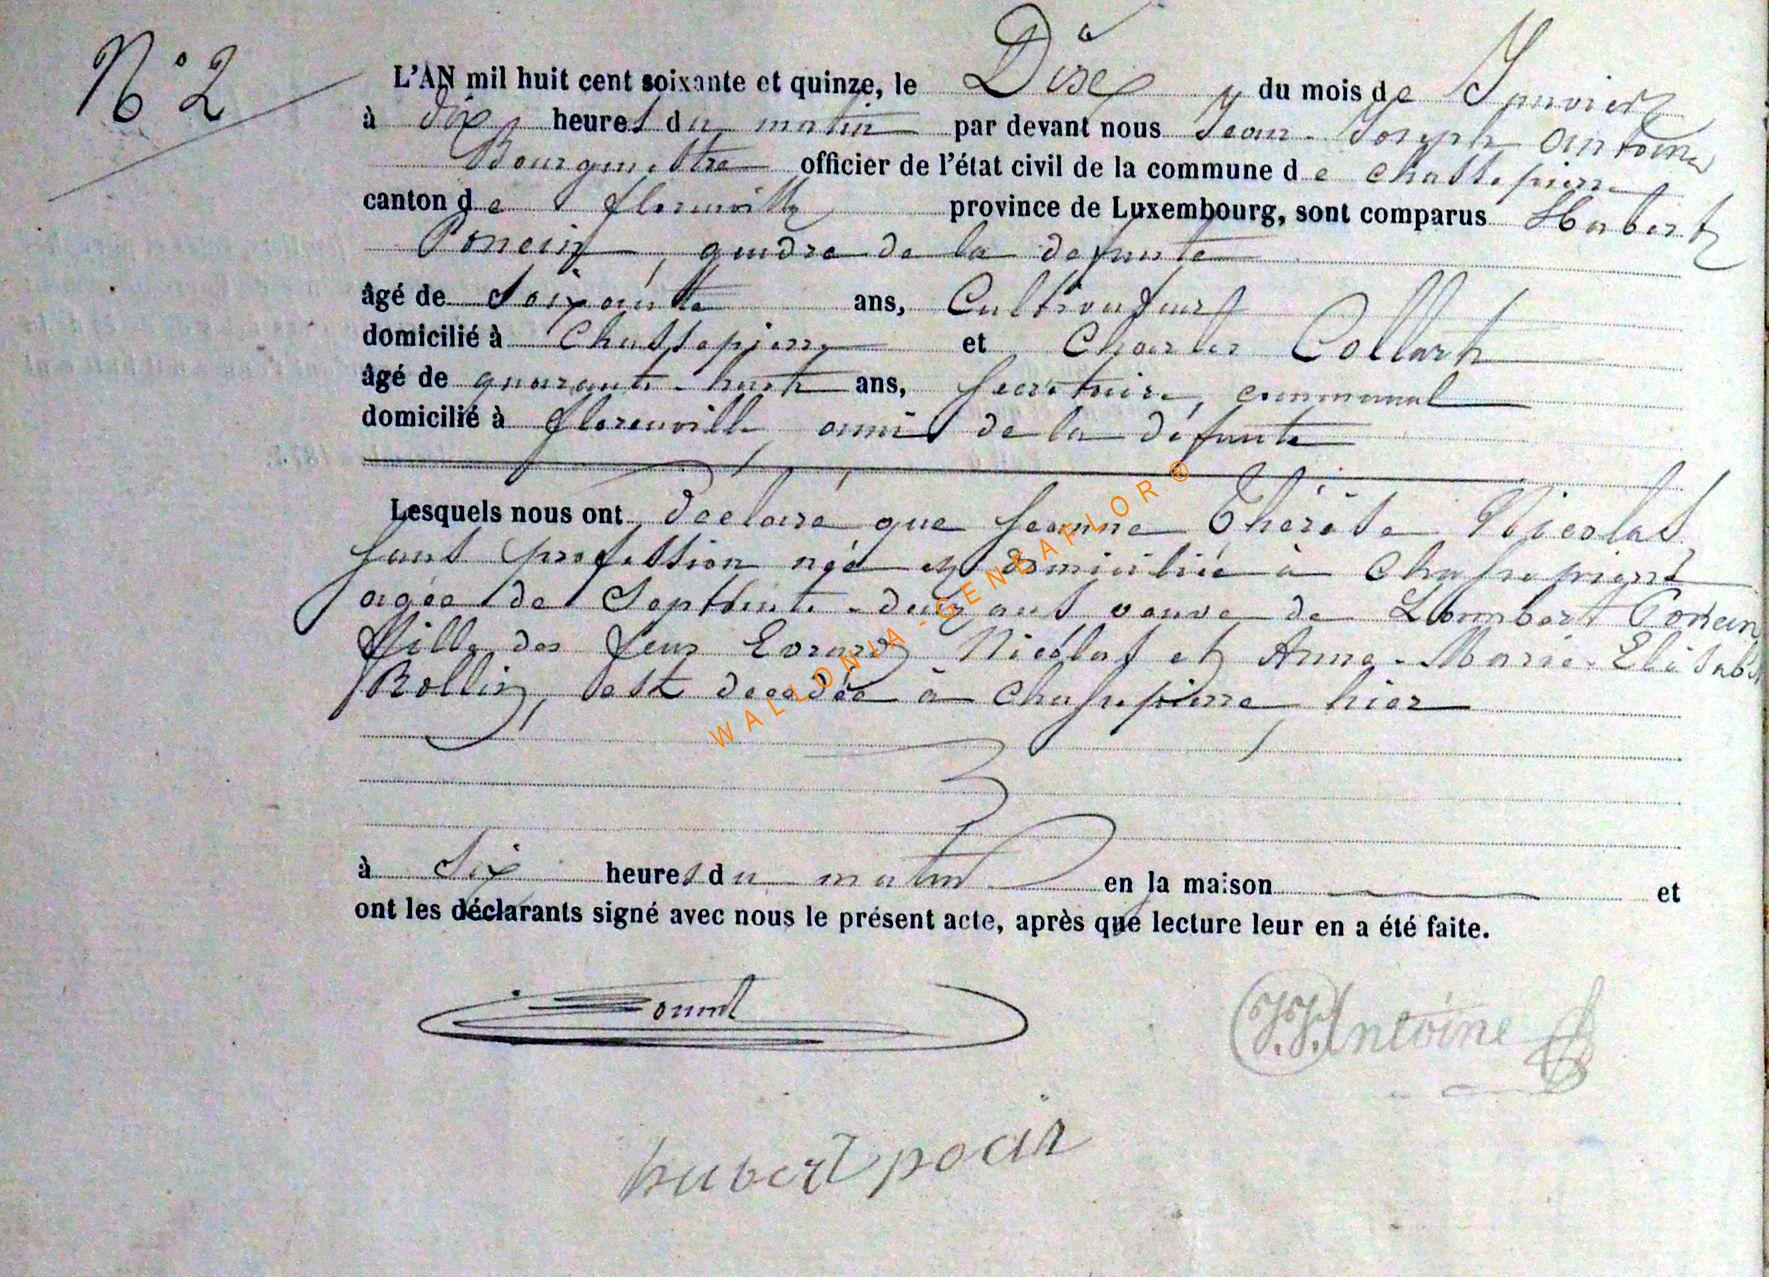 N° 2
L'AN mil huit cent soixante et quinze, le Dix du mois de Janvier
à dix heures du matin par devant nous Jean-Joseph Antoine
Bourgmestre officier de l'état civil de la commune de Chassepierre
canton de florenville province de Luxembourg, sont comparus Hubert
Poncin, gendre de la defunte
âgé de Soixante ans, Cultivateur
domicilié à Chassepierre et Charles Collart
âgé de quarante-huit ans, Secrétaire communal
domicilié à florenville, ami de la défunte
Lesquels nous ont déclaré que Jeanne Thérèse Nicolas
sans profession née et domiciliée à Chassepierre
agée de Septante-deux ans veuve de Lambert Poncin
fille des feus Evrard Nicolas et Anne-Marie-Elisabeth
Rollin, est decedée à Chassepierre hier
à Six heures du matin en la maison et
ont les déclarants signé avec nous le présent acte, après que lecture leur en a été faite.
J.J. Antoine
hubert pocin
WALLONIA-GENEAFLOR®